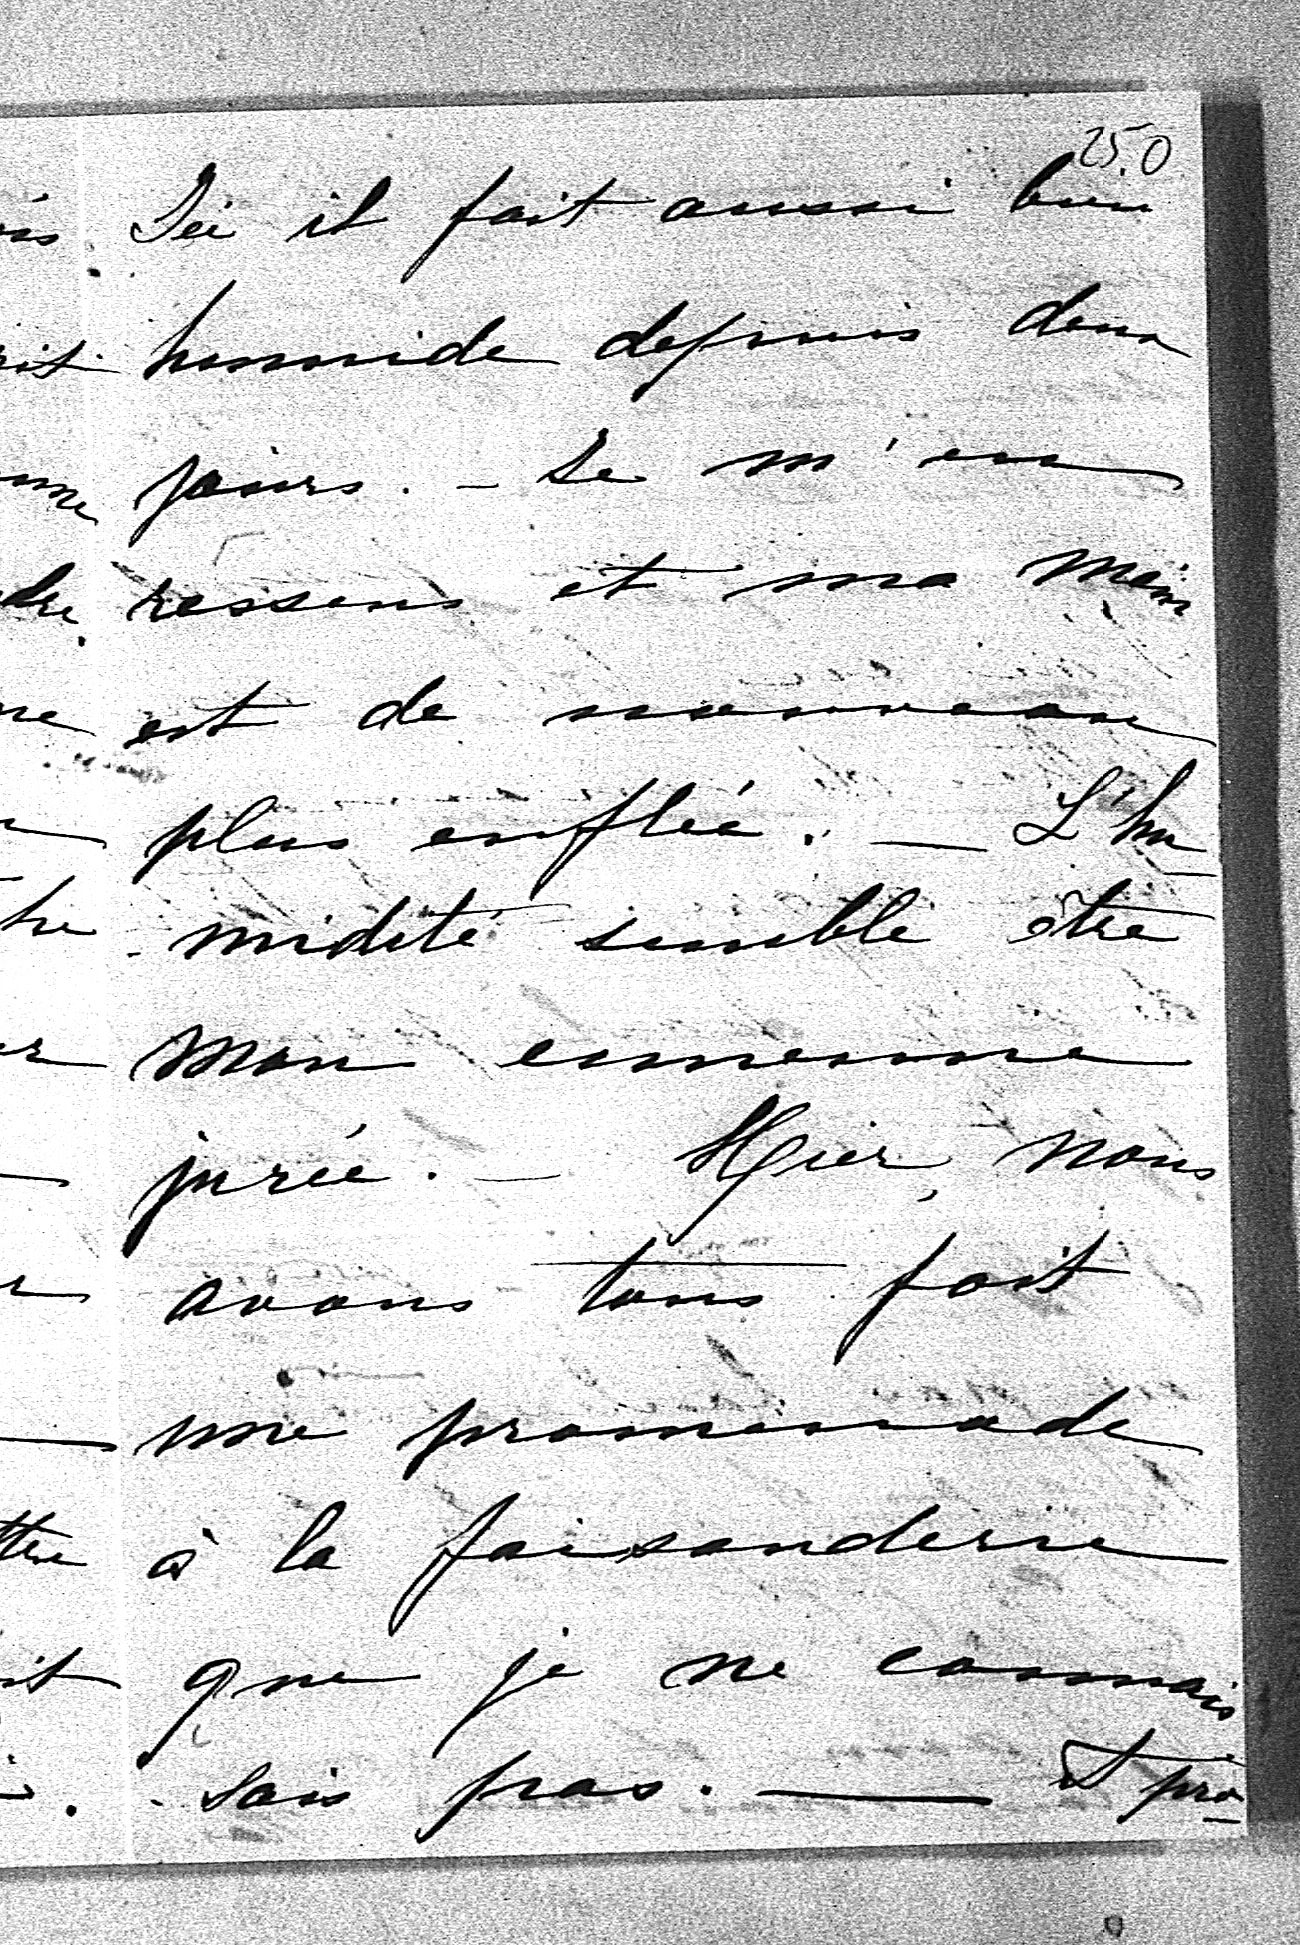 250
Ici il fait aussi bien
humide depuis deux
jours. - Je m'en
ressens et ma main
est de nouveau
plus enflée. — L'hu
midité semble être
mon ennemie
jurée. — Hier, nous
avons tous fait
une promenade
à la faisanderie
que je ne connais
sais pas. — Et pro